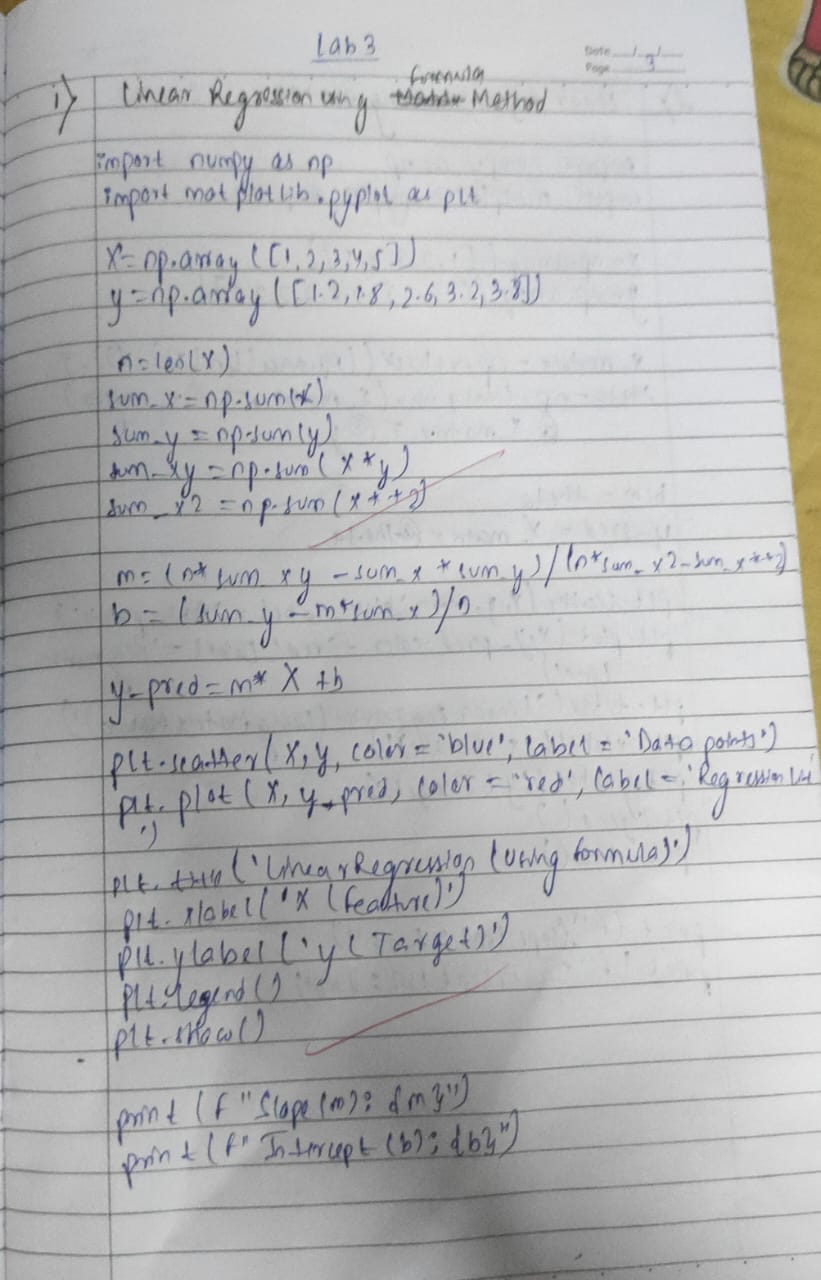 Lab 3
Date / /
Page 3
i) Linear Regression using formula Method
import numpy as np
import matplotlib.pyplot as plt
X = np.array([1,2,3,4,5])
y = np.array([1.2,1.8,2.6,3.2,3.8])
n = len(X)
sum_x = np.sum(X)
sum_y = np.sum(y)
sum_xy = np.sum(X*y)
sum_x2 = np.sum(X**2)
m = (n* sum_xy - sum_x * sum_y) / (n*sum_x2 - sum_x**2)
b = (sum_y - m*sum_x)/n
y_pred = m* X + b
plt.scatter(X, y, color = 'blue', label = 'Data points')
plt.plot(X, y_pred, color = 'red', label = 'Regression line
')
plt.title('Linear Regression (using formula)')
plt.xlabel('X (feature)')
plt.ylabel('y (Target)')
plt.legend()
plt.show()
print(f"Slope (m): {m}")
print(f"Intercept (b): {b}")